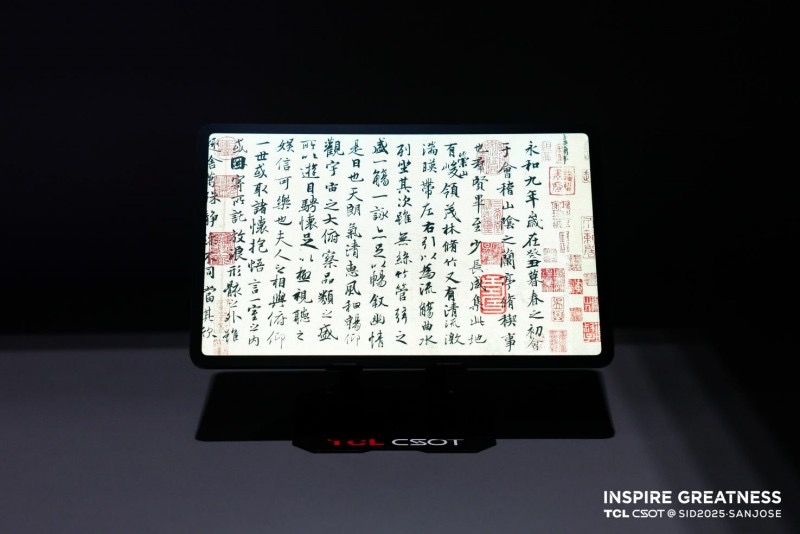 永和九年歲在癸丑暮春之初會
于會稽山陰之蘭亭脩禊事
也羣賢畢至少長咸集此地
有崇山峻領茂林脩竹又有清流激
湍暎帶左右引以為流觴曲水
列坐其次雖無絲竹管弦之
盛一觴一詠亦足以暢敘幽情
是日也天朗氣清惠風和暢仰
觀宇宙之大俯察品類之盛
所以遊目騁懷足以極視聽之
娛信可樂也夫人之相與俯仰
一世或取諸懷抱悟言一室之內
或因寄所託放浪形骸之外雖
趣舍萬殊靜躁不同當其欣
TCL CSOT
INSPIRE GREATNESS
TCL CSOT @ SID2025-SANJOSE